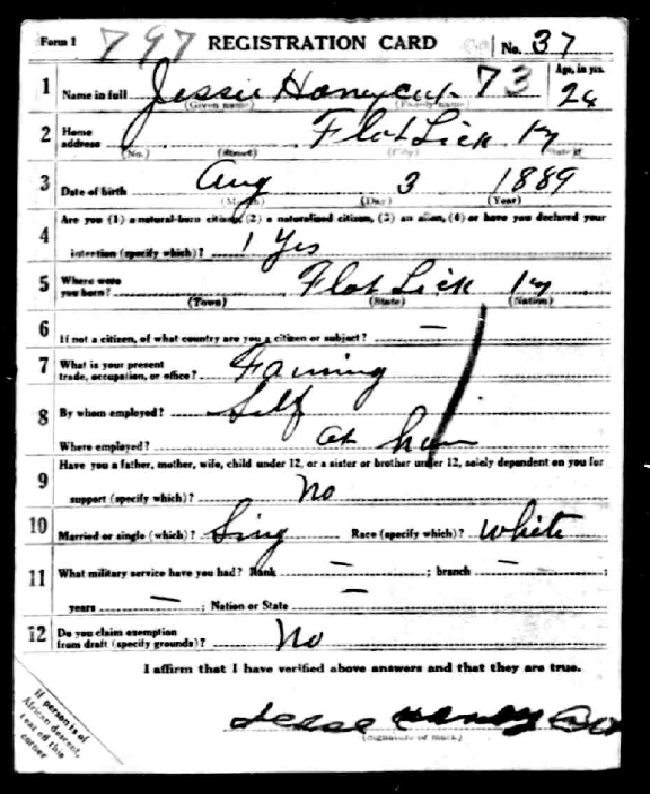 Form 1 797 REGISTRATION CARD No. 37
1 Name in full Jessie Honeycut 73 Age, in yrs.
(Given name) (Family name) 26
2 Home address Flat Lick Ky
(No.) (Street) (City) (State)
3 Date of birth Aug 3 1889
(Month) (Day) (Year)
4 Are you (1) a natural-born citizen, (2) a naturalized citizen, (3) an alien, (4) or have you declared your
intention (specify which)? 1 Yes
5 Where were you born? Flat Lick Ky
(Town) (State) (Nation)
6 If not a citizen, of what country are you a citizen or subject? —
7 What is your present trade, occupation, or office? Faming
8 By whom employed? Self
Where employed? at hom
9 Have you a father, mother, wife, child under 12, or a sister or brother under 12, solely dependent on you for
support (specify which)? No
10 Married or single (which)? Sing Race (specify which)? White
11 What military service have you had? Rank — ; branch — ;
years — ; Nation or State —
12 Do you claim exemption from draft (specify grounds)? No
I affirm that I have verified above answers and that they are true.
Jesse
(Signature or mark)
If person is of
African descent,
tear off this
corner